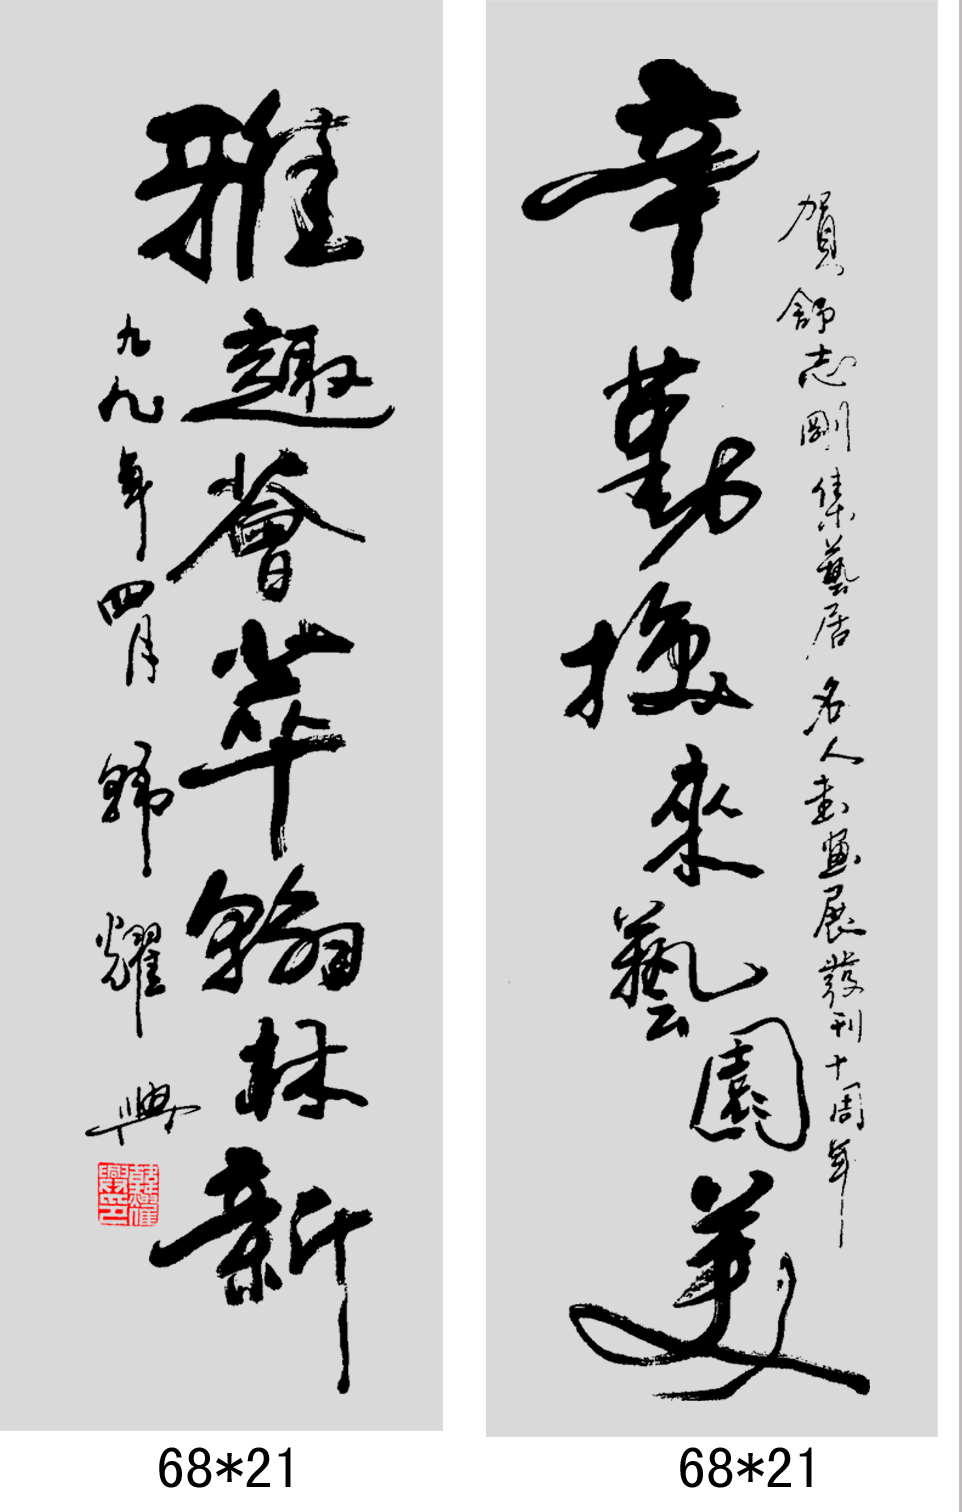 賀舒志剛集藝居名人書畫展發刊十周年
辛勤換來藝園美
雅趣薈萃翰林新
九九年四月韓耀興
韓耀興印
68*21
68*21